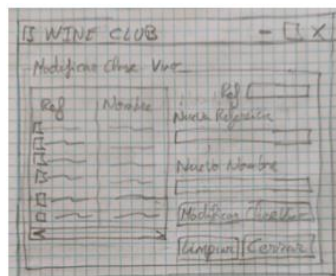 WINE CLUB
Modificar Clase Vino
Ref Nombre
Ref
Nueva Referencia
Nuevo Nombre
Modificar
Limpiar Cerrar